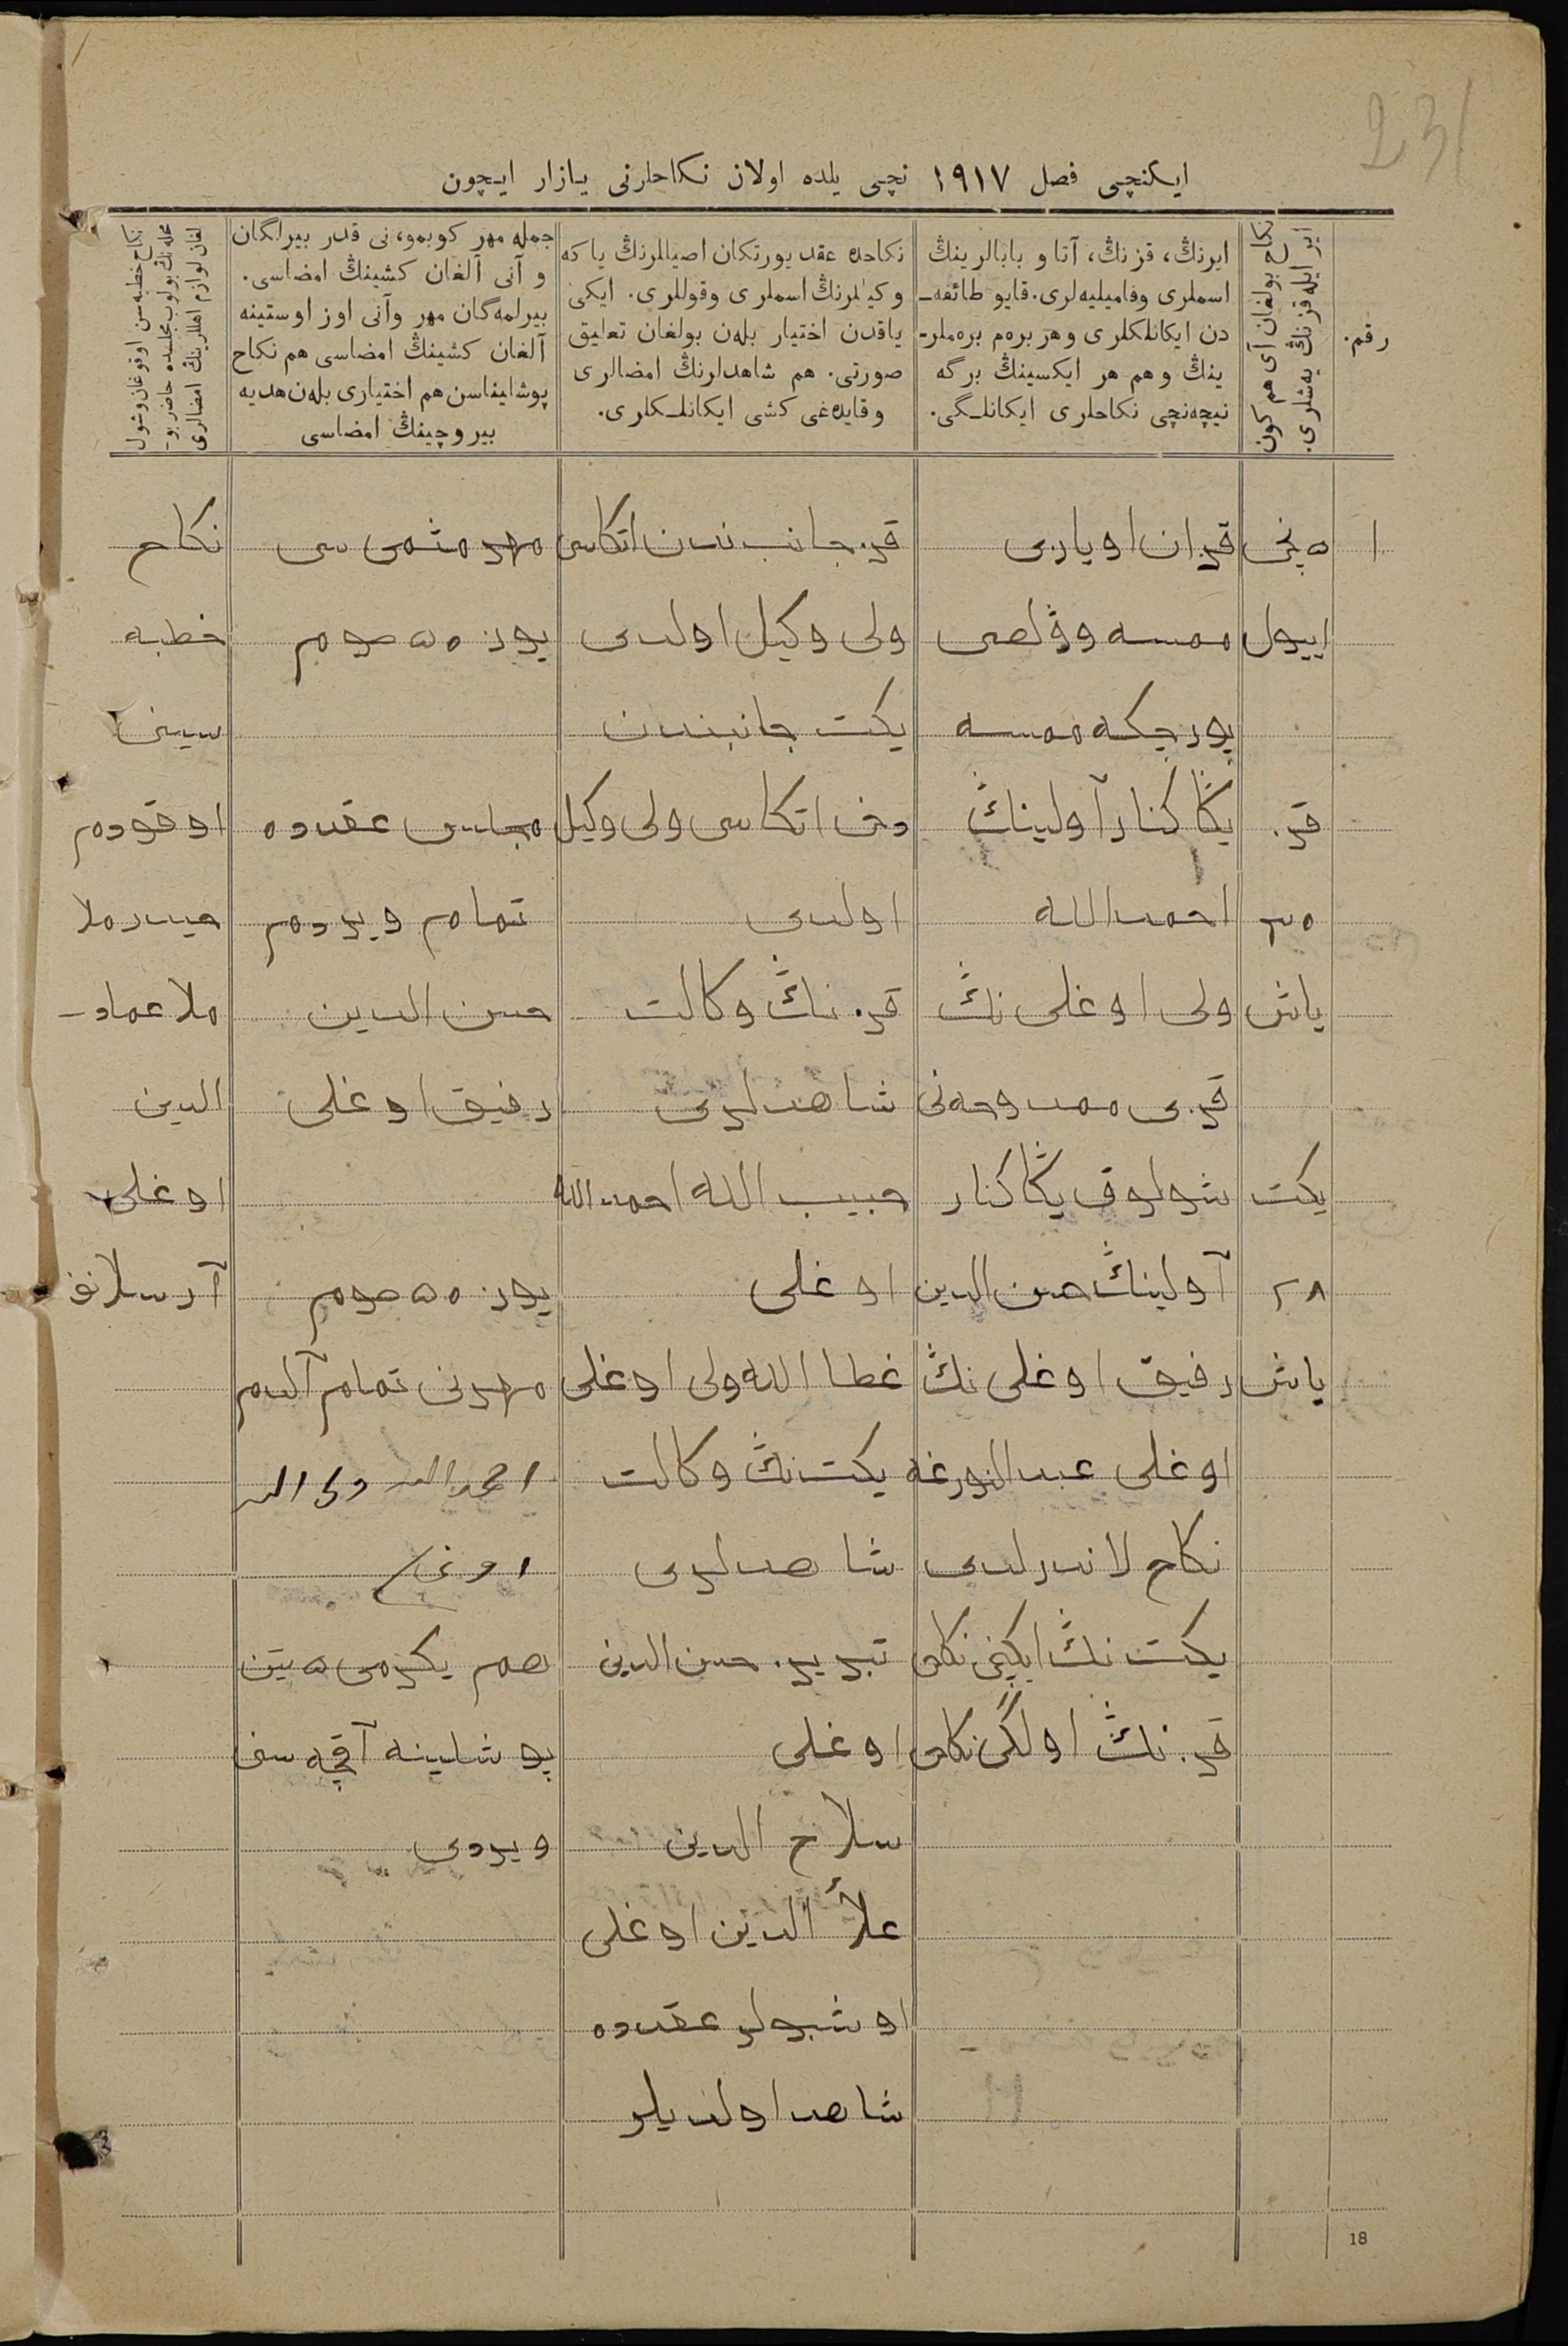 231
ایکنچی فصل ۱۹۱۷ نچی یلده اولان نکاحلرنی یازار ایچون
رقم.
نکاح بولغان آی هم کون
ایر ایله قزنڭ یه‌شلری.
ایرنڭ، قزنڭ، آتا و بابالرینڭ
اسملری وفامیلیه‌لری. قایو طائفه‌ـ
دن ایکانلکلری وهر بره‌م بره‌ملرـ
ینڭ وهم هر ایکسینڭ برگه
نیچه‌نچی نکاحلری ایکانلـگی.
نکاحده عقد یورتکان اصیاللرنڭ یاکه
وکیللرنڭ اسملری وقوللری. ایکی
یاقدن اختیار بله‌ن بولغان تعلیق
صورتی. هم شاهدلرنڭ امضالری
وقایده‌غی کشی ایکانلـکلری.
جمله مهر کوبمو، نی قدر بیرلگان
و آنی آلغان کشینڭ امضاسی.
بیرلمه‌گان مهر وآنی اوز اوستینه
آلغان کشینڭ امضاسی هم نکاح
پوشلیناسن هم اختیاری بله‌ن هدیه
بیروچینڭ امضاسی
نکاح خطبه‌سن اوقوغان وشول
محله‌نڭ بولوب مجلسده حاضر بوـ
لغان لوازم اهللرینڭ امضالری
۱
۵ نچی
اییول
قز
۲۰
یاش
یکت
۲۸
یاش
قزان اویازی
ممسه وولصی
یورجکه ممسه
یڭا کنار آولینڭ
احمدالله
ولی اوغلی نڭ
قزی ممدوحه‌نی
شولوق یڭا کنار
آولینڭ حسن الدین
رفیق اوغلی نڭ
اوغلی عبدالنورغه
نکاح لاندرلدی
یکت نڭ ایکنچی نکاحی
قز نڭ اولگی نکاحی
قز جانبندن اتکاسی
ولی وکیل اولدی
یکت جانبندن
دخی اتکاسی ولی وکیل
اولدی
قز نڭ وکالت
شاهدلری
حبیب الله احمدالله
اوغلی
غطا الله ولی اوغلی
یکت نڭ وکالت
شاهدلری
تبریز حسن الدین
اوغلی
سلاح الدین
علأ الدین اوغلی
اوشبولر عقدده
شاهد اولدیلر
مهر مثمی سی
یوز ۵۰ صوم
مجلس عقدده
تمام ویردم
حسن الدین
رفیق اوغلی
یوز ۵۰ صوم
مهرنی تمام آلدم
احمدالله ولی الله
اوغلی
هم یکرمی ۵ تین
پوشلینه آقچه سی
ویردی
نکاح
خطبه
سینی
اوقودم
حیدر ملا
ملا عمادـ
الدین
اوغلی
آرسلانف
18